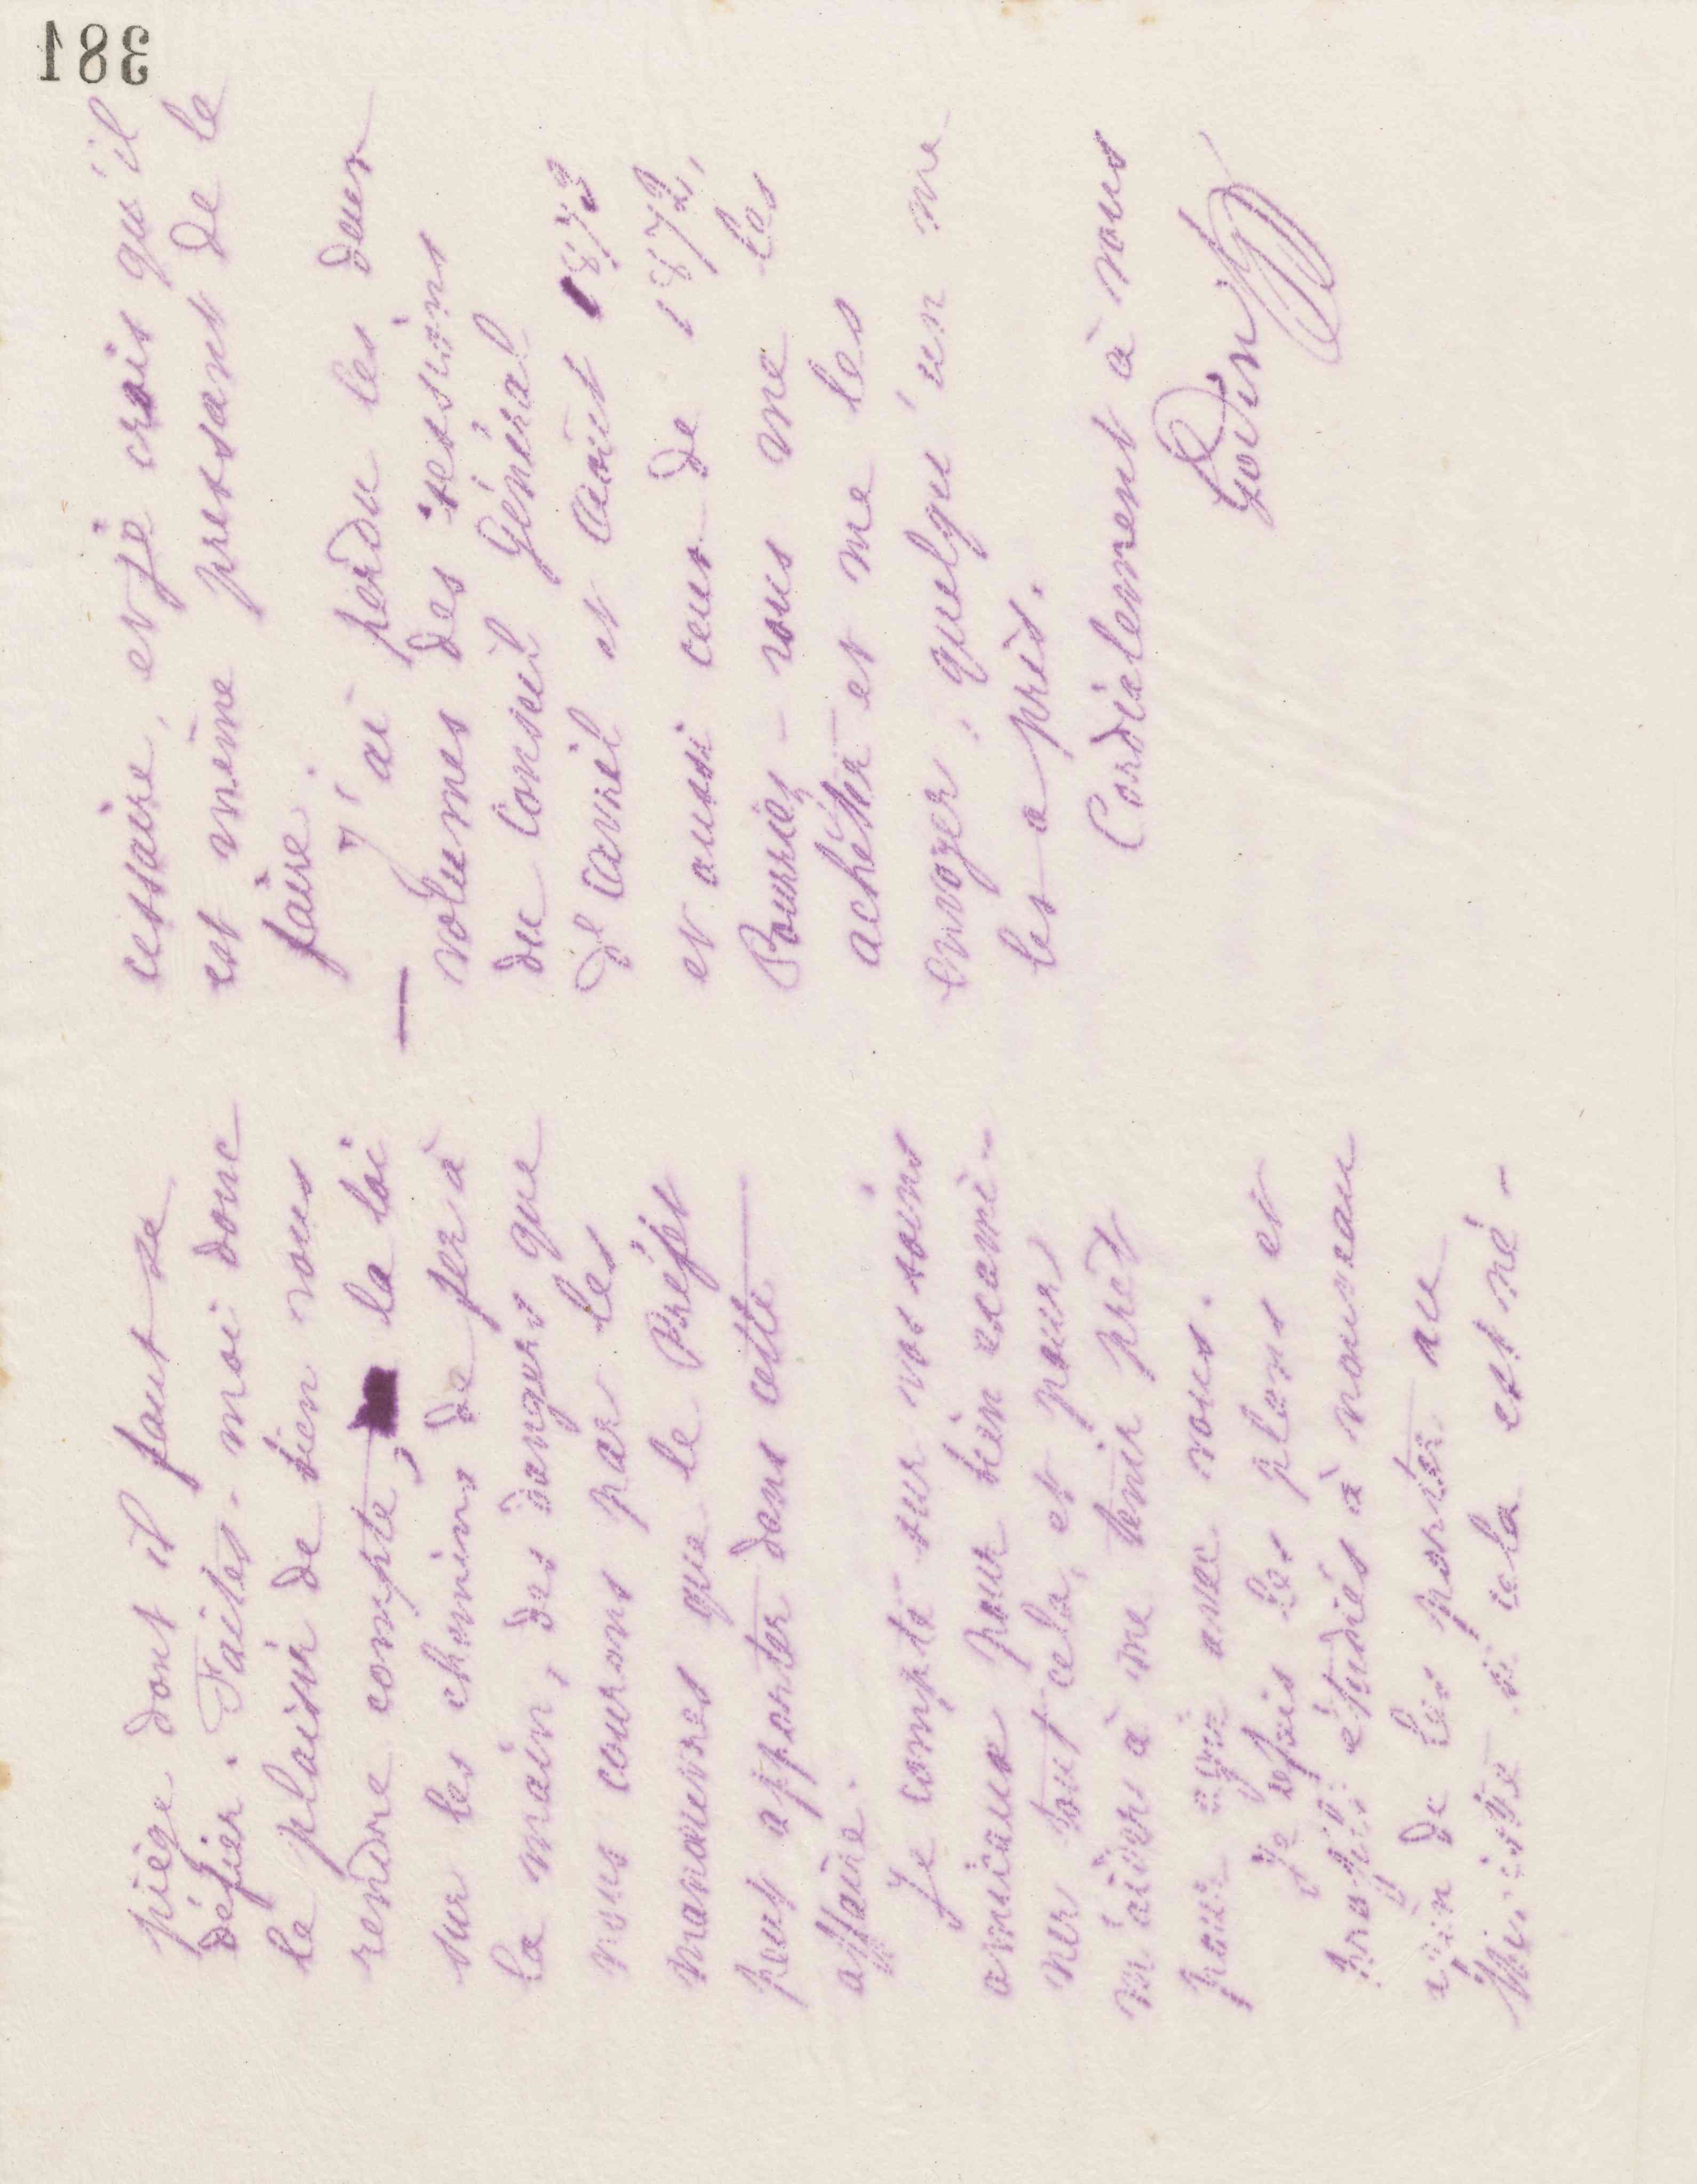 381
piège dont il faut se
défier. Faites-moi donc
le plaisir de bien vous
rendre compte, la loi
sur les chemins de fer à
la main, des dangers que
nous courons par les
manœuvres que le Préfet
peut apporter dans cette
affaire.
Je compte sur vos soins
amicaux pour bien exami-
ner tout cela, et pour
m'aider à me tenir prêt
pour agir avec vous.
Je fais les plans et
projets étudiés à nouveau
afin de les porter au
Ministre si cela est né-
cessaire, et je crois qu'il
est même pressant de le
faire.
— J'ai perdu les deux
volumes des sessions
du Conseil Général
d'avril et août 1873
et aussi ceux de 1872,
Pourriez-vous me les
acheter et me les
envoyer, quelqu'un me
les a pris.
Cordialement à vous
Godin